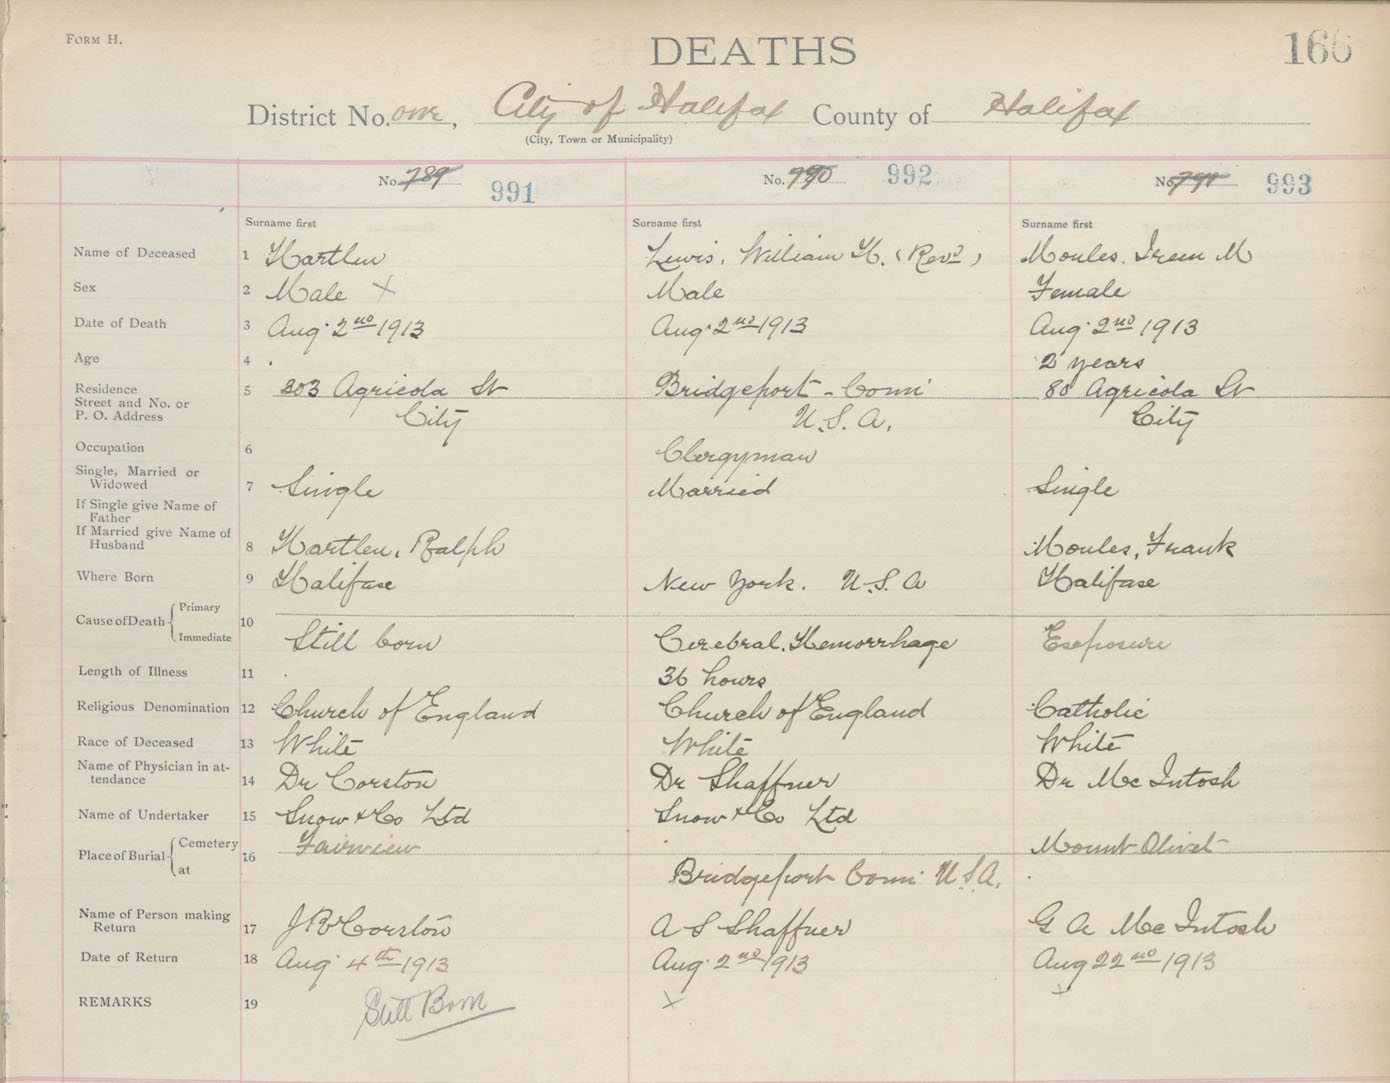 FORM H.
DEATHS
166
District No. one, City of Halifax County of Halifax
(City, Town or Municipality)
No. 789 991 No. 990 992 No. 791 993
Surname first Surname first Surname first
Name of Deceased 1 Hartlen Lewis, William H. (Revd) Moules. Ireen M
Sex 2 Male X Male Female
Date of Death 3 Aug. 2nd 1913 Aug. 2nd 1913 Aug. 2nd 1913
Age 4 2 years
Residence
Street and No. or 5 303 Agricola St Bridgeport - Conn' 80 Agricola St
P. O. Address City U.S.A. City
Occupation 6 Clergyman
Single, Married or
Widowed 7 Single Married Single
If Single give Name of
Father
If Married give Name of
Husband 8 Hartlen, Ralph Moules, Frank
Where Born 9 Halifax New York. U.S.A Halifax
Cause of Death Primary 10
Immediate Still born Cerebral. Hemorrhage Exposure
Length of Illness 11 36 hours
Religious Denomination 12 Church of England Church of England Catholic
Race of Deceased 13 White White White
Name of Physician in at-
tendance 14 Dr Corston Dr Shaffner Dr McIntosh
Name of Undertaker 15 Snow & Co Ltd Snow & Co Ltd
Place of Burial Cemetery 16 Fairview Mount Olivet
at Bridgeport Conn' U.S.A.
Name of Person making
Return 17 J R Corston A S Shaffner G A McIntosh
Date of Return 18 Aug. 4th 1913 Aug. 2nd 1913 Aug 22nd 1913
REMARKS 19 Still Born X X